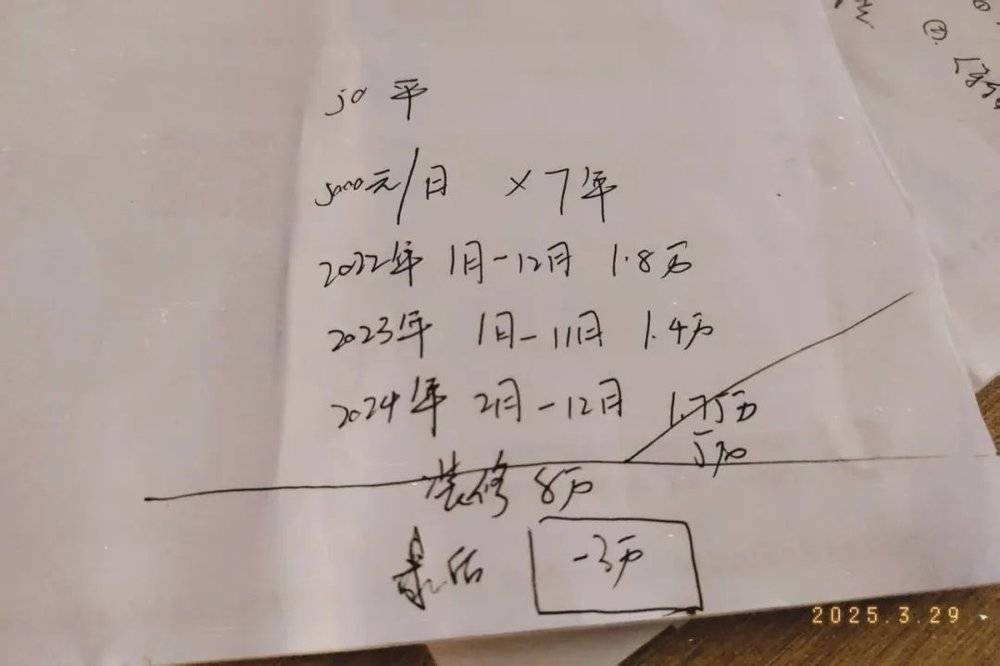 50 平
5000元/日 × 7年
2022年 1月-12月 1.8万
2023年 1月-11月 1.4万
2024年 2月-12月 1.75万
装修 8万
最后 -3万
②
2025.3.29